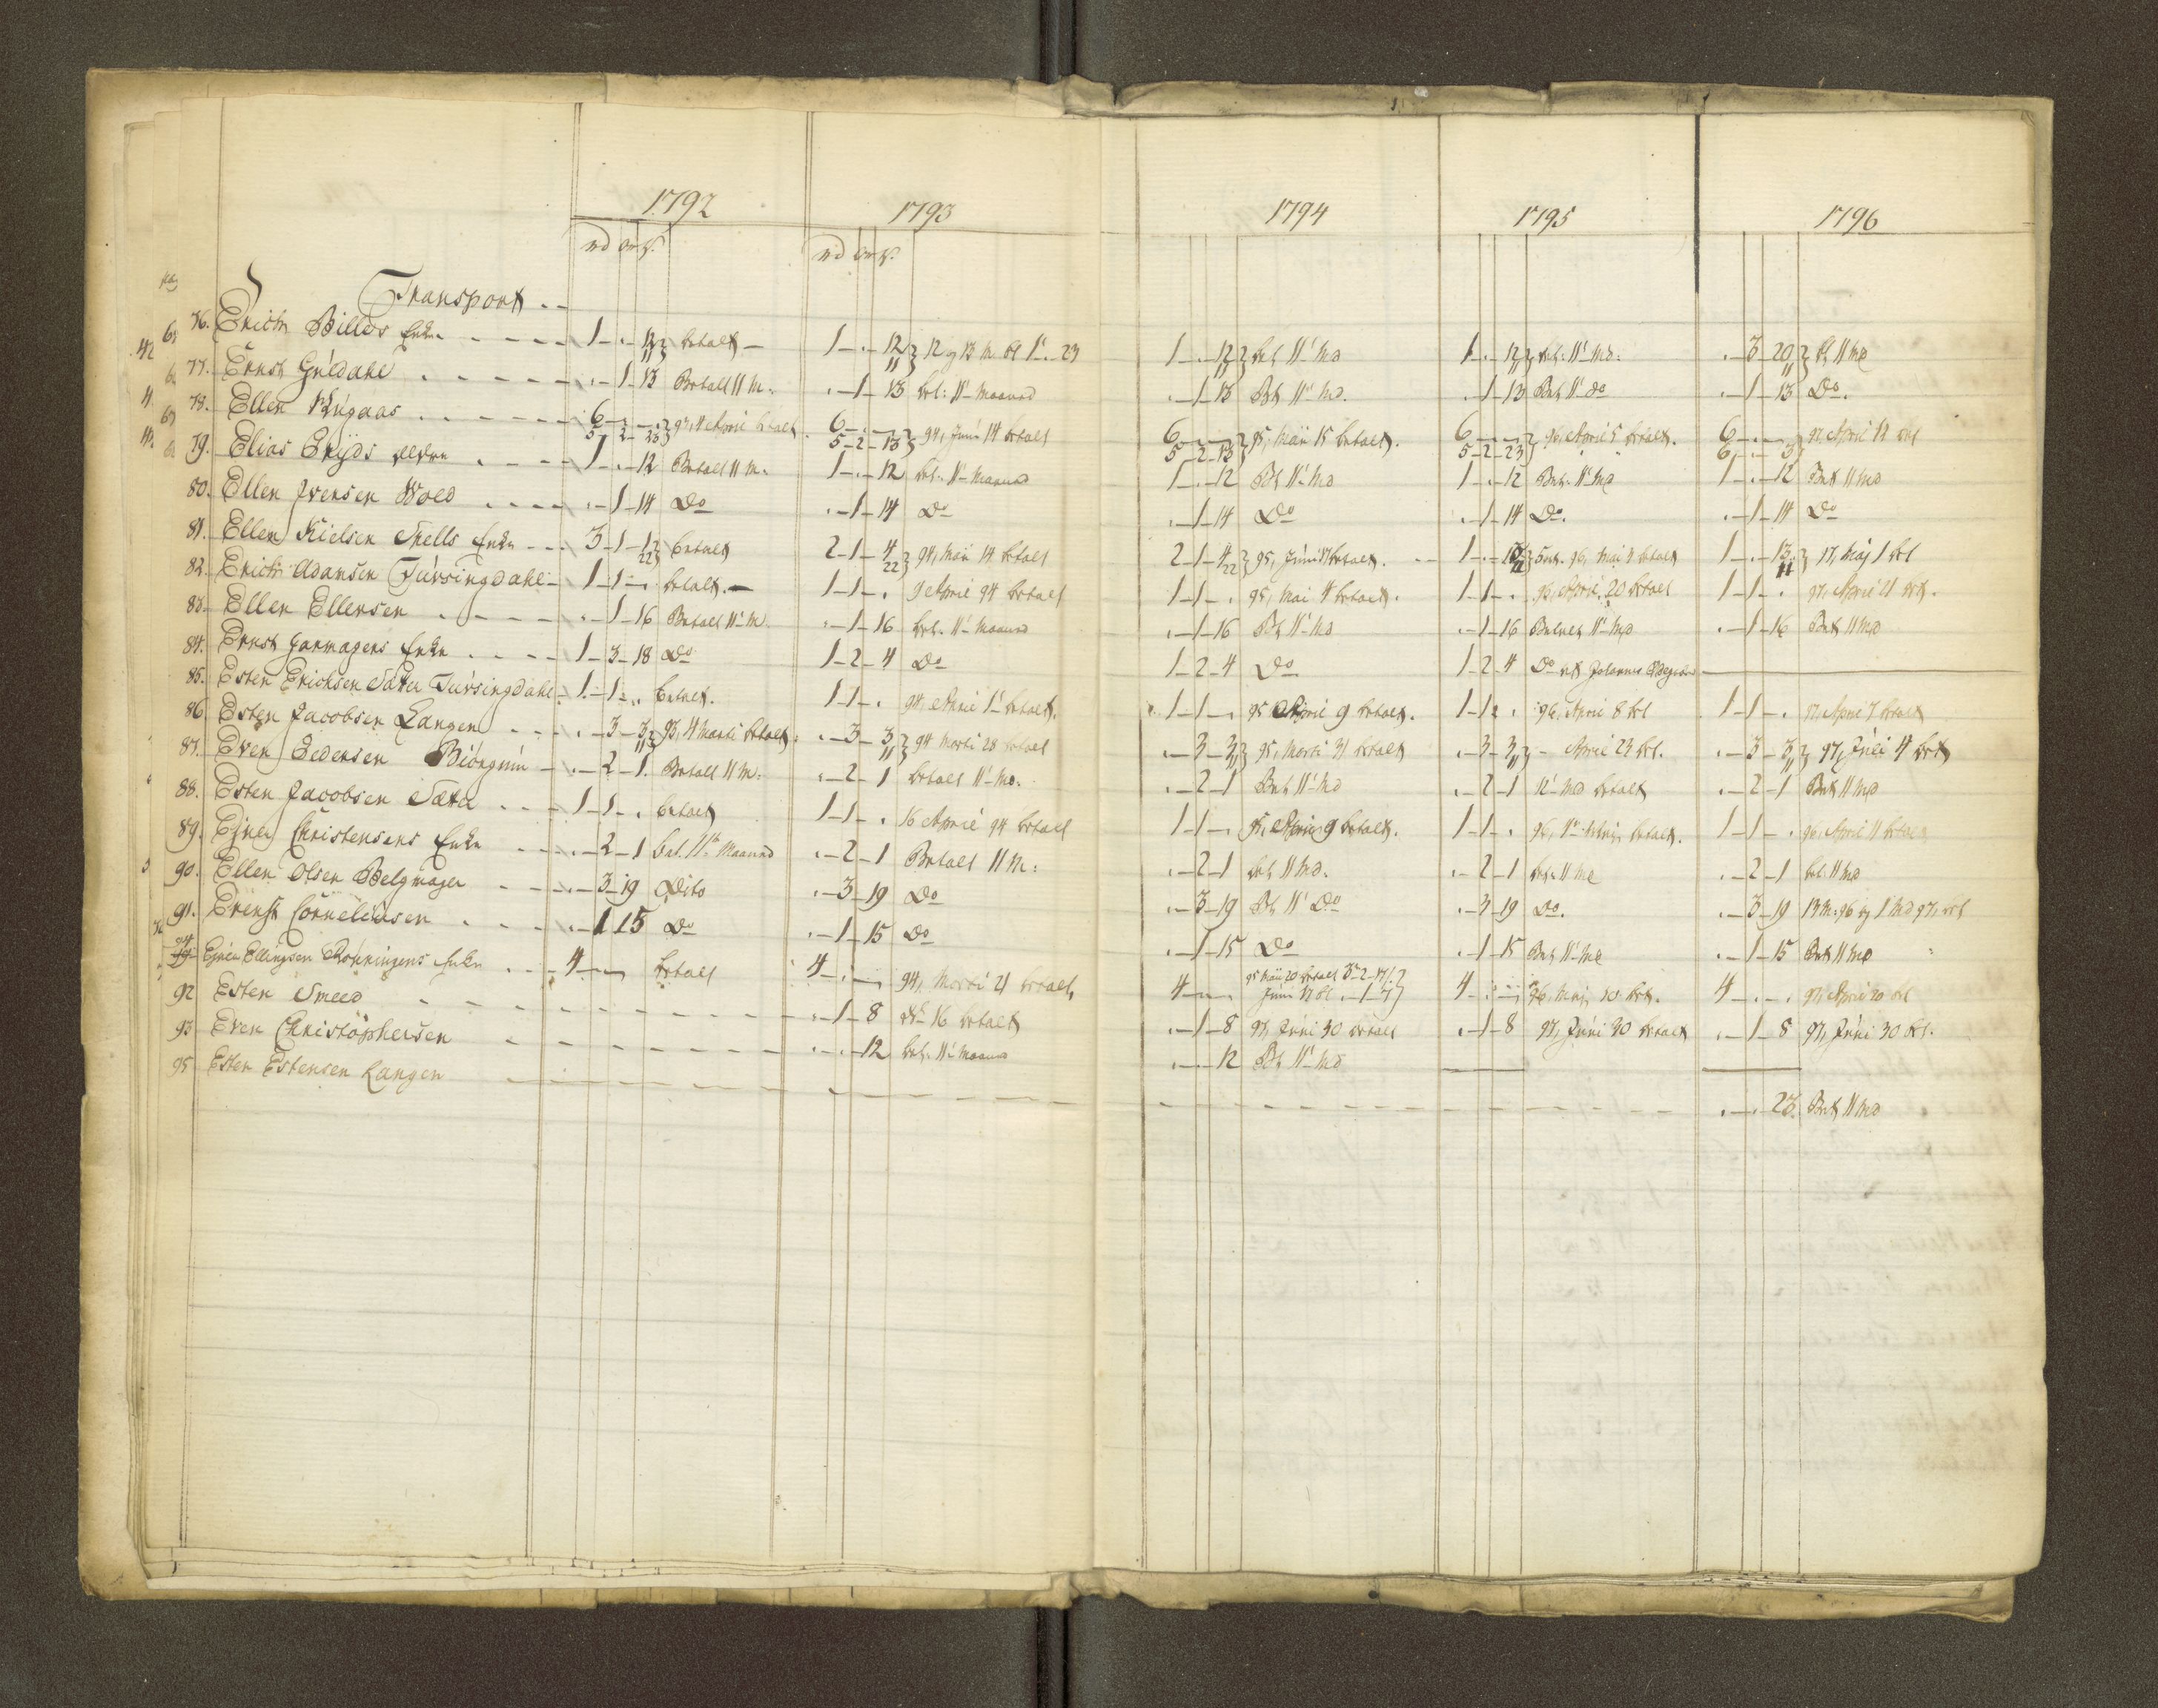 1792 1793 1794 1795 1796
rd ort ß. rd ort ß.
Transport
76. Erich Billes Enke 1 - . - 12 11 betalt 1 - . - 12 11 12 og 13 M. bt 1 . 23 1 - . - 12 11 bet 11 Md 1 - . - 12 11 bet: 11 Md: . - 3 - 20 11 bt 11 Md
77. Ernst Guldahl . - 1 - 13 Betalt 11 M. . - 1 - 13 bet: 11 Maaned . - 1 - 13 Bt 11 Md. . - 1 - 13 Bet 11 do . - 1 - 13 Do.
78. Ellen Kugaas 6 - . - . 5 - 2 - 23 93, 4 April betalt 6 - . - . 5 - 2 - 13 94, Juni 14 betalt 6 - . - . 5 - 2 - 13 95, Maii 15 betalt. 6 - . - . 5 - 2 - 23 96, April 5 betalt. 6 - . - . 6 - . - 3 97 April 12 bet
79. Elias 1 - . - 12 Betalt 11 M. 1 - . - 12 bet: 11 Maaned 1 - . - 12 Bt 11 Md 1 - . - 12 Bet: 11 Md 1 - . - 12 Bet 11 Md
80. Ellen Iversen Wold . - 1 - 14 Do . - 1 - 14 Do . - 1 - 14 Do . - 1 - 14 Do. . - 1 - 14 Do
81. Ellen Nielsen Enke 3 - 1 - 12 22 betalt 2 - 1 - 4 22 94, Maii 14 betalt 2 - 1 - 4 22 95, Juni 17 betalt. 1 - . - 96, Mai 4 betalt 1 - . - 13 11 97, Maj 1 bet
82. Erich Adamsen Tufsingdahl 1 - 1 - . betalt. 1 - 1 - . 9 April 94 betalt 1 - 1 - . 95, Mai 4 betalt. 1 - 1 - . 96, April, 20 betalt 1 - 1 - . 97, April 21 bet.
83. Ellen Ellensen . - 1 - 16 Betalt 11 M . - 1 - 16 bet. 11 Maaned . - 1 - 16 Bt 11 Md . - 1 - 16 Betalt 11 Md . - 1 - 16 Bet 11 Md
84. Ernst Garmagers Enke 1 - 3 - 18 Do 1 - 2 - 4 Do 1 - 2 - 4 Do 1 - 2 - 4 Do
85. Esten Erichsen Sæter Tufsingdahl 1 - 1 - . betalt. 1 - 1 - . 94, April 1 betalt. 1 - 1 - . 95 April 9 betalt. 1 - 1 - . 96, April 8 bet 1 - 1 - . 97, April 7 betalt
86. Esten Jacobsen Langen . - 3 - 3 11 93, 4 Marti betalt . - 3 - 3 11 94 Marti 28 betalt . - 3 - 3 11 95, Marti 31 betalt . - 3 - 3 11 - April 23 bet. . - 3 - 3 11 97, Juli 4 bet
87. Even Pedersen . - 2 - 1. Betalt 11 M: . - 2 - 1 betalt 11 Md. . - 2 - 1 Bet 11 Md . - 2 - 1 11 Md betalt . - 2 - 1 Bet 11 Md
88. Esten Jacobsen Sæter 1 - 1 - . betalt 1 - 1 - . 16 April 94 betalt 1 - 1 - . 95, April 9 betalt. 1 - 1 - . 96, betalt. 1 - 1 - . 96, April 11 betalt
89. Ejner Christensens Enke . - 2 - 1 bet. 11 Maaned . - 2 - 1 Betalt 11 M: . - 2 - 1 bet 11 Md. . - 2 - 1 bet: 11 Md . - 2 - 1 bet: 11 Md
90. Ellen Olsen Belgmager . - 3 - 19 Dito . - 3 - 19 Do . - 3 - 19 Bt 11 Do . - 3 - 19 Do. . - 3 - 19 13 M. 96 og 1 Md 97, bet
91. Evensk Corneliusen . - 1 15 Do . - 1 - 15 Do . - 1 - 15 Do . - 1 - 15 Bet 11 Md . - 1 - 15 Bet 11 Md
94 Ejner Ellingsen Rønningens Enke 4 - . - . betalt 4 - . - . 94, Marti 21 betalt 4 - . - . 95 Maii 20 betalt 3 - 2 - 17 Juni 17 bt . - 1 - 7 4 - . - . 96, Maj 10 bet. 4 - . - . 97, April 20 bet
92 Esten Smeed . - 1 - 8 16 betalt . - 1 - 8 97, Juni 30 betalt . - 1 - 8 97, Juni 30 betalt . - 1 - 8 97, Juni 30 bet.
93 Even Christophersen . - . - 12 bet. 11 Maaned . - . - 12 Bt 11 Md
95 Esten Estensen Langen . - . - 23. Bet 11 Md